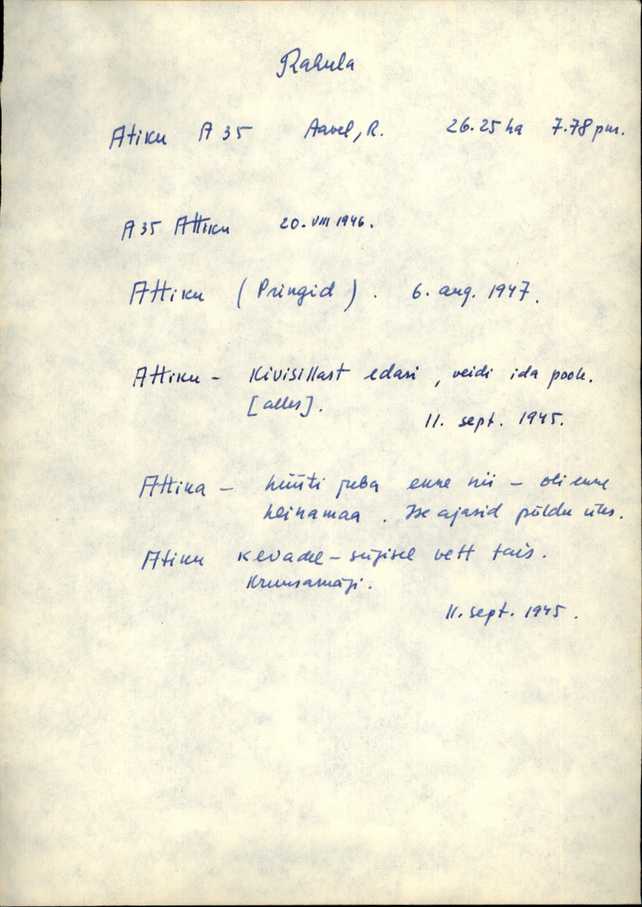 Rahula
Atiku A 35 Aavel, R. 26.25 ha 7.78 pm.
A 35 Attiku 20. VIII 1946.
Attiku (Pringid). 6. aug. 1947.
Attiku - Kivisillast edasi, veidi ida pool.
[alles].
11. sept. 1945.
Attika - hüüti juba enne nii - oli enne
heinamaa. Ise ajasid põldu üles.
Atiku kevadel - sügisel vett täis.
Kruusamägi.
11. sept. 1945.